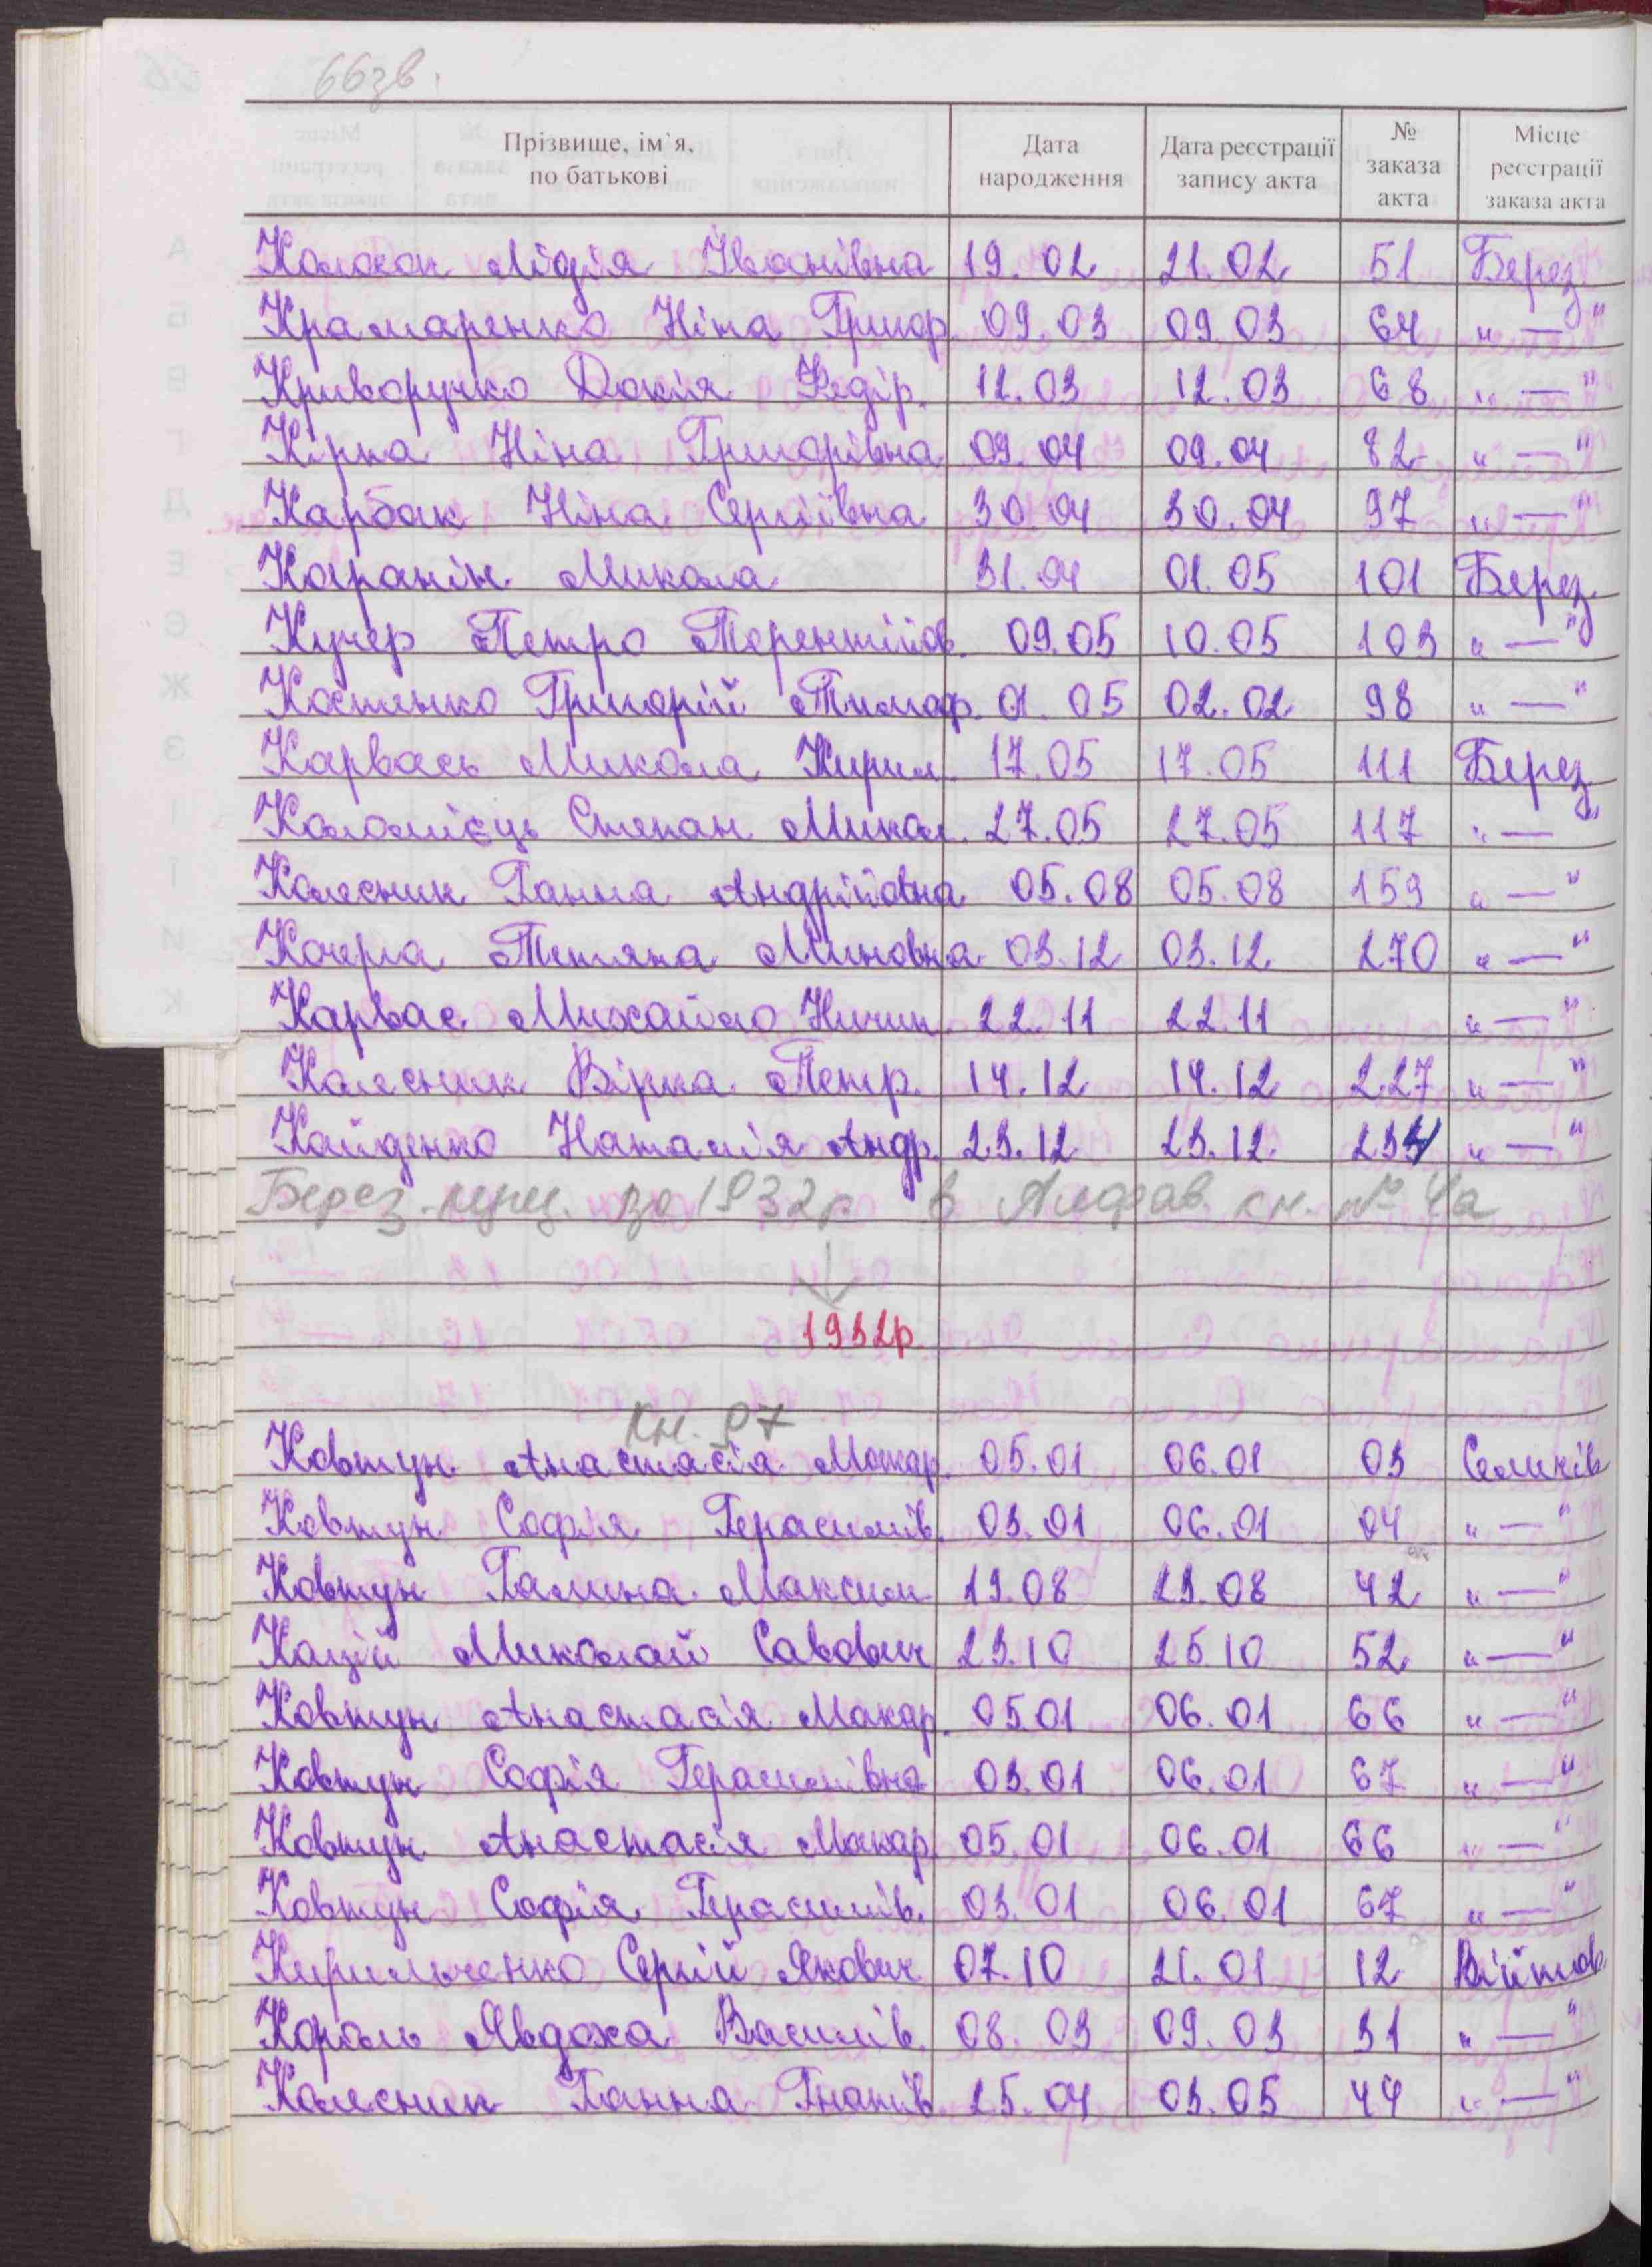 66зв.
Прізвище, ім`я, по батькові Дата народження Дата реєстрації запису акта № заказа акта Місце реєстрації заказа акта
Лідія Іванівна 19.02 21.02 51 Берез
Крамаренко Ніна Григор. 09.03 09.03 64 "—"
Криворучко Докія Федір. 12.03 12.03 68 "—"
Кірка Ніна Григорівна 09.04 09.04 82 "—"
Карбак Ніна Сергіївна 30.04 30.04 97 "—"
Каранін Микола 31.04 01.05 101 Берез
Кучер Петро Терентійов. 09.05 10.05 103 "—"
Костенко Григорій Тимоф. 01.05 02.02 98 "—"
Карвась Микола Кирил. 17.05 17.05 111 Берез
Коломієць Степан Микол. 27.05 27.05 117 "—"
Колесник Ганна Андрійовна 05.08 05.08 159 "—"
Кочерга Тетяна Миновна 03.12 03.12 270 "—"
Карвас Михайло Ничип. 22.11 22.11 "—"
Колесник Вірка Петр. 14.12 14.12 227 "—"
Кайденко Наталія Андр. 23.12 23.12 234 "—"
Берез. про 1932р в Алфав. кн. № 4а
1932р.
Кн. 97
Ковтун Анастасія Макар. 05.01 06.01 03 Семенів
Ковтун Софія Герасимів. 03.01 06.01 04 "—"
Ковтун Галина Максим 19.08 23.08 42 "—"
Кацій Миколай Савович 23.10 25.10 52 "—"
Ковтун Анастасія Макар. 05.01 06.01 66 "—"
Ковтун Софія Герасимівна 03.01 06.01 67 "—"
Ковтун Анастасія Макар 05.01 06.01 66 "—"
Ковтун Софія Герасимів. 03.01 06.01 67 "—"
Кирильченко Сергій Якович 07.10 21.01 12 Війтов.
Король Явдоха Василів. 08.03 09.03 31 "—"
Колесник Ганна Гнатів. 25.04 03.05 44 "—"